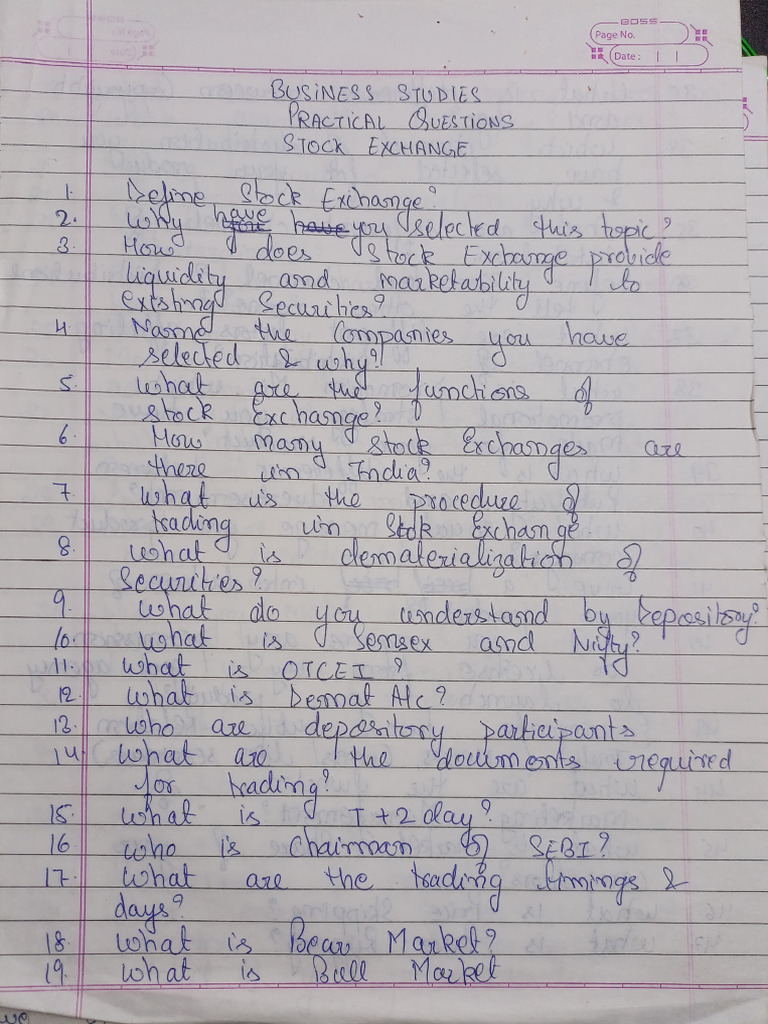 BOSS
Page No.
Date :
BUSINESS STUDIES
PRACTICAL QUESTIONS
STOCK EXCHANGE
1. Define Stock Exchange?
2. Why have you selected this topic?
3. How does Stock Exchange provide
liquidity and marketability to
existing Securities?
4. Name the Companies you have
selected & why?
5. What are the functions of
stock Exchange?
6. How many Stock Exchanges are
there in India?
7. What is the procedure of
trading in Stock Exchange
8. What is dematerialization of
Securities?
9. What do you understand by Depository?
10. What is Sensex and Nifty?
11. What is OTCEI ?
12. What is Demat A/c?
13. Who are depository participants
14. What are the documents required
for trading?
15. What is T+2 day?
16 Who is Chairman of SEBI?
17. What are the trading timings &
days?
18. What is Bear Market?
19. What is Bull Market